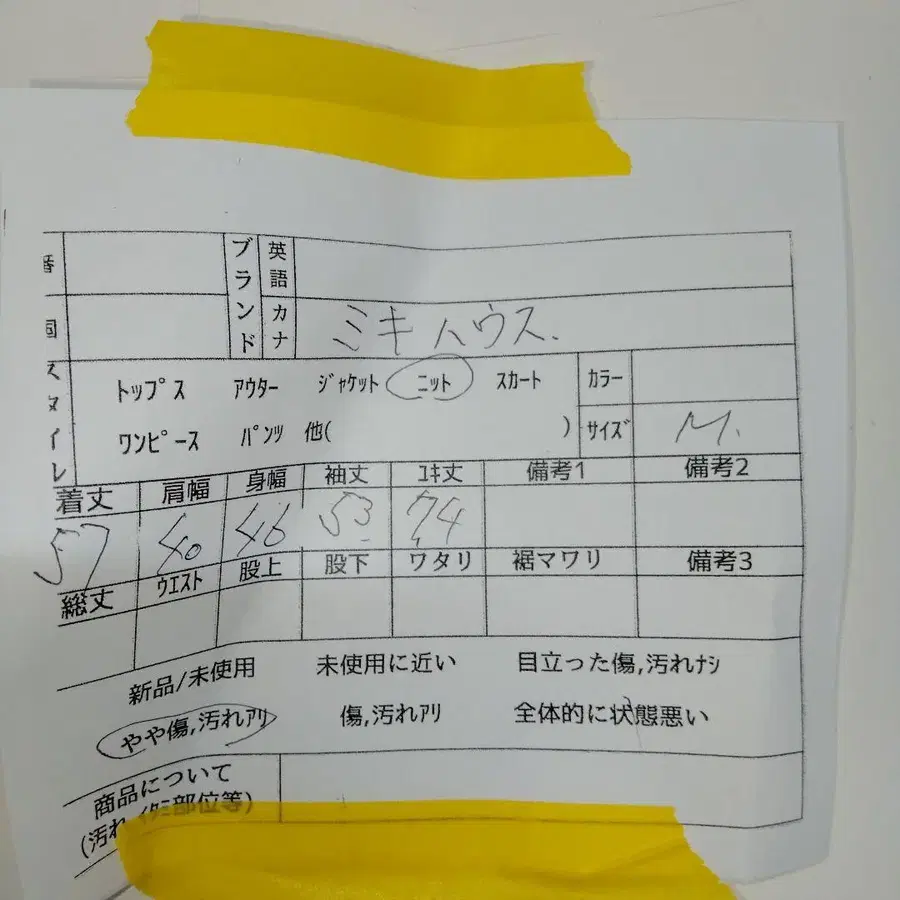 番 ブランド 英語
国 カナ ミキハウス.
スタイル トップス アウター ジャケット ニット スカート カラー
ワンピース パンツ 他( ) サイズ M.
着丈 肩幅 身幅 袖丈 ユキ丈 備考1 備考2
57 40 46 53 74
総丈 ウエスト 股上 股下 ワタリ 裾マワリ 備考3
新品/未使用 未使用に近い 目立った傷,汚れナシ
やや傷,汚れアリ 傷,汚れアリ 全体的に状態悪い
商品について
(汚れ 部位等)